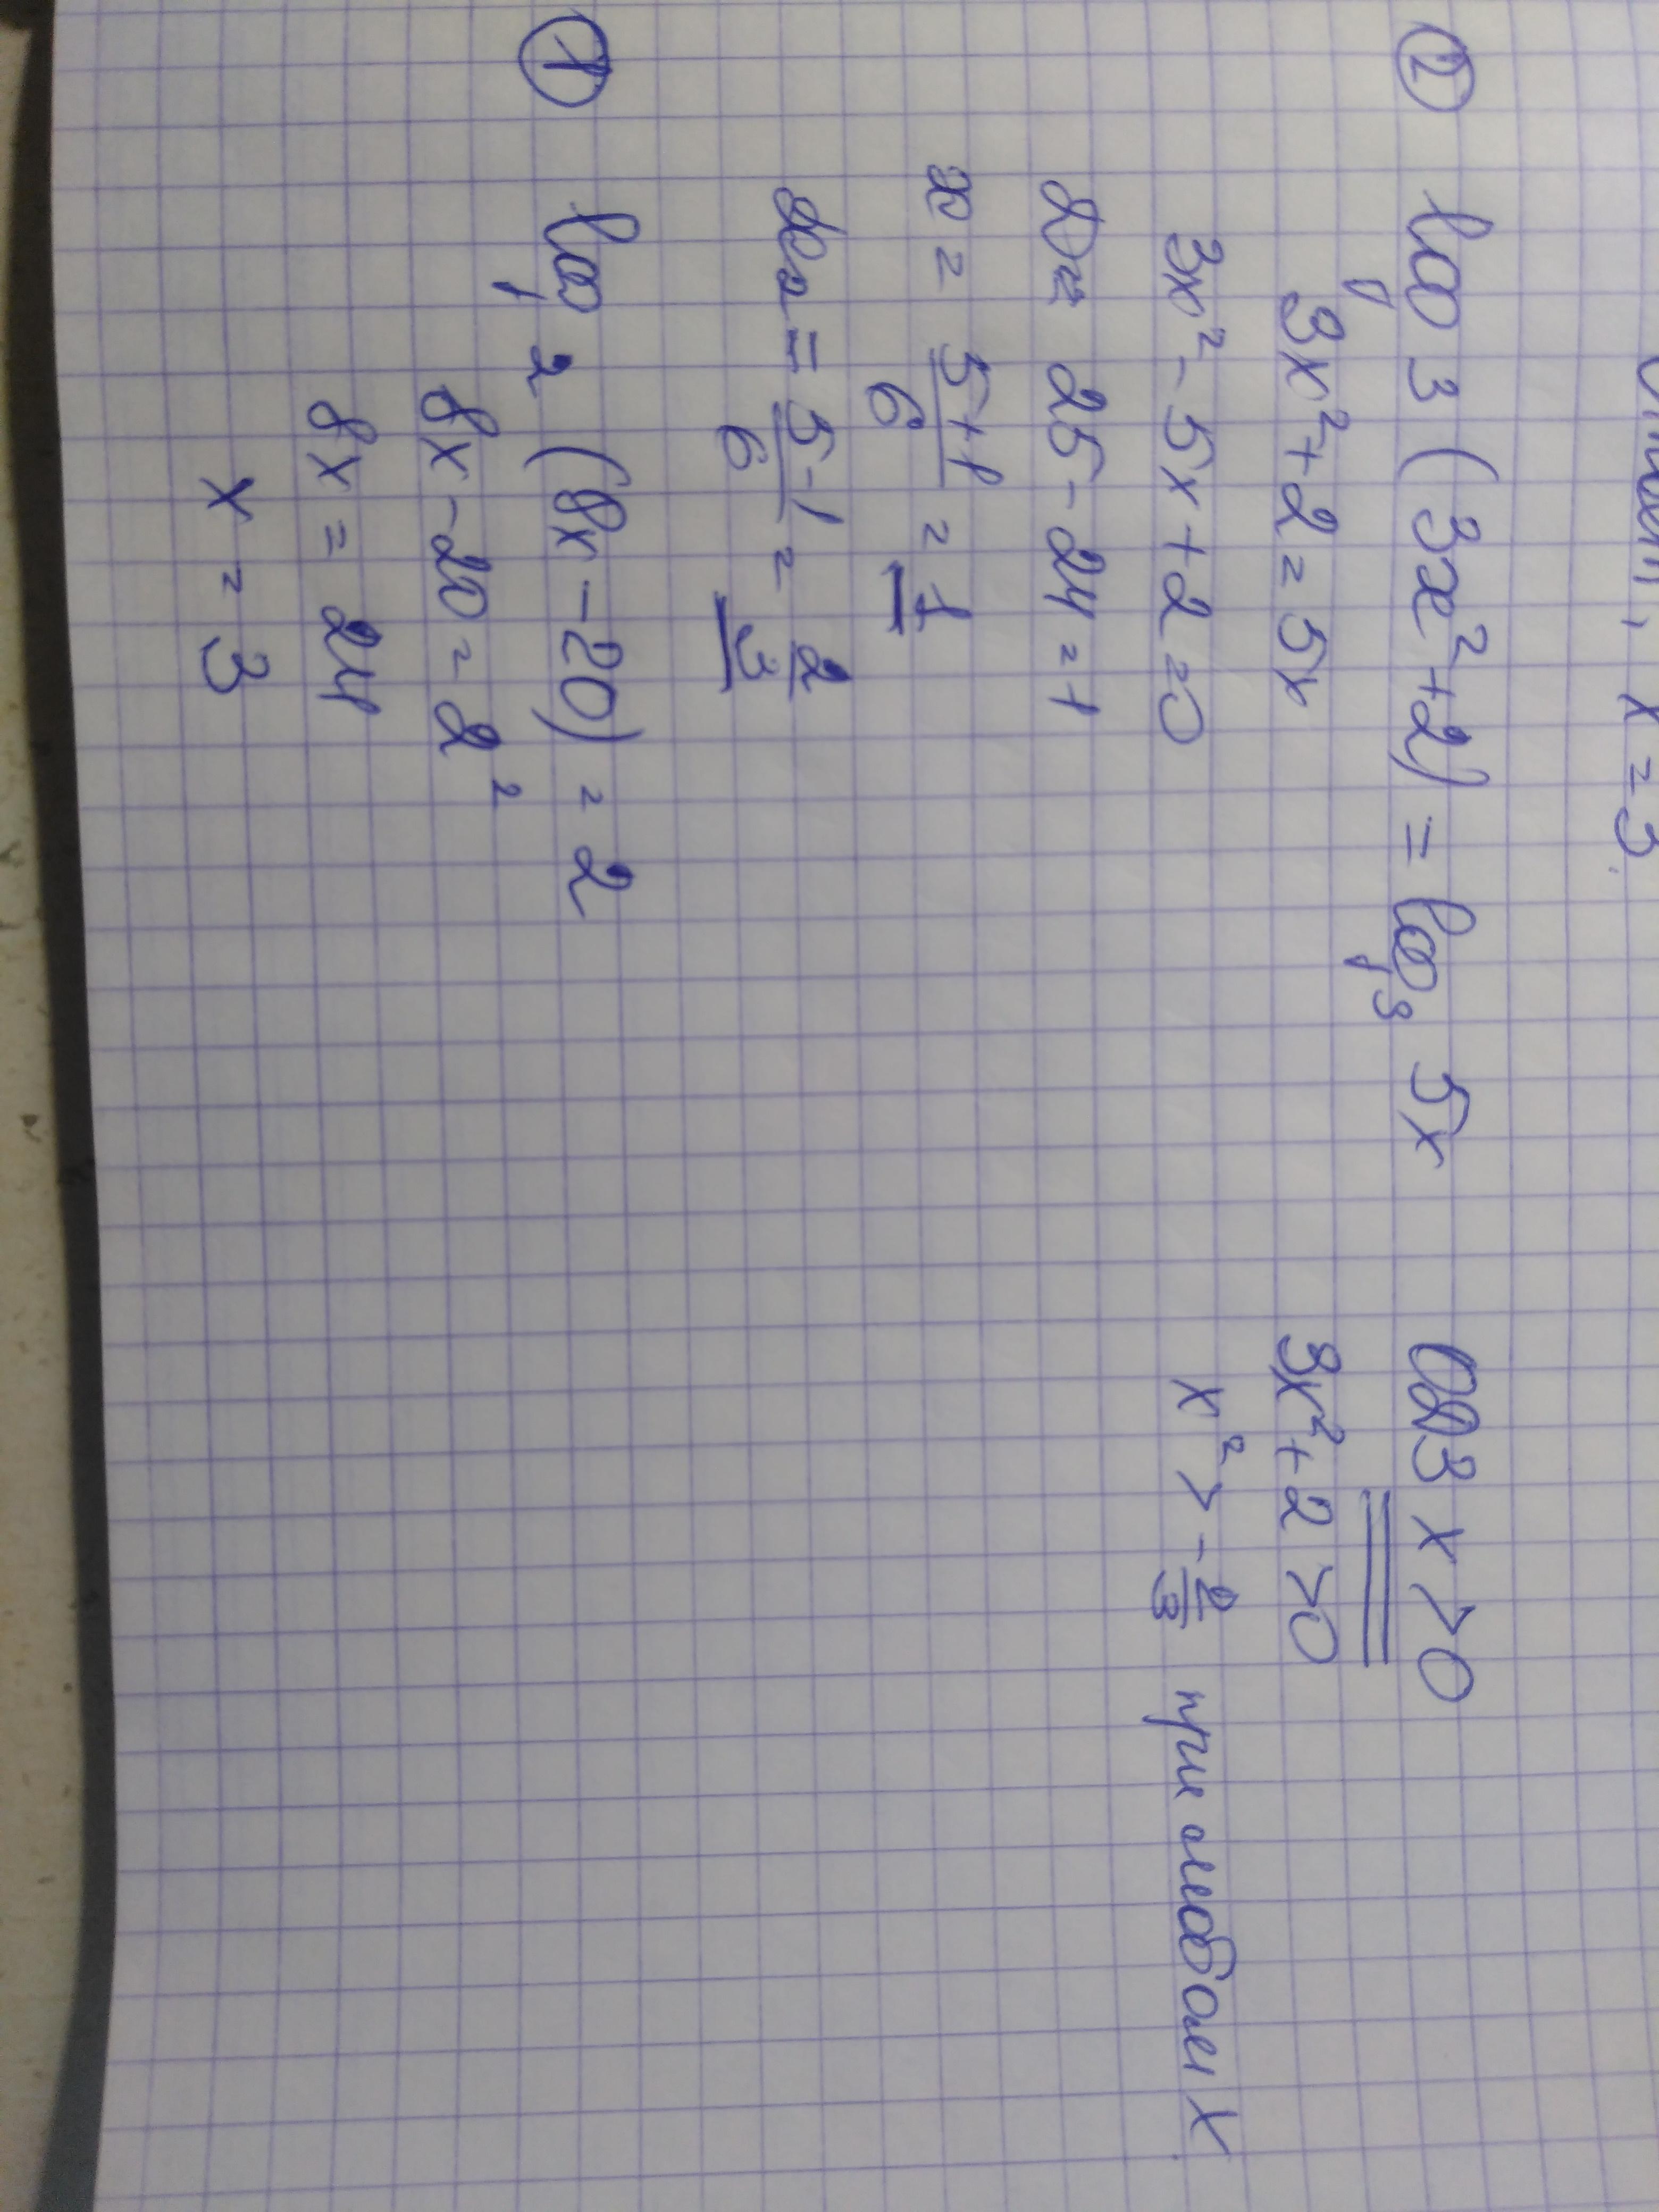 x = 3.
② log 3 (3x² + 2) = log₃ 5x
ОДЗ x > 0
3x² + 2 = 5x
3x² + 2 > 0
3x² - 5x + 2 = 0
x² > -2/3 при любом x
D = 25 - 24 = 1
x = (5+1)/6 = 1
x₂ = (5-1)/6 = 2/3
① log ₂ (8x - 20) = 2
8x - 20 = 2²
8x = 24
x = 3